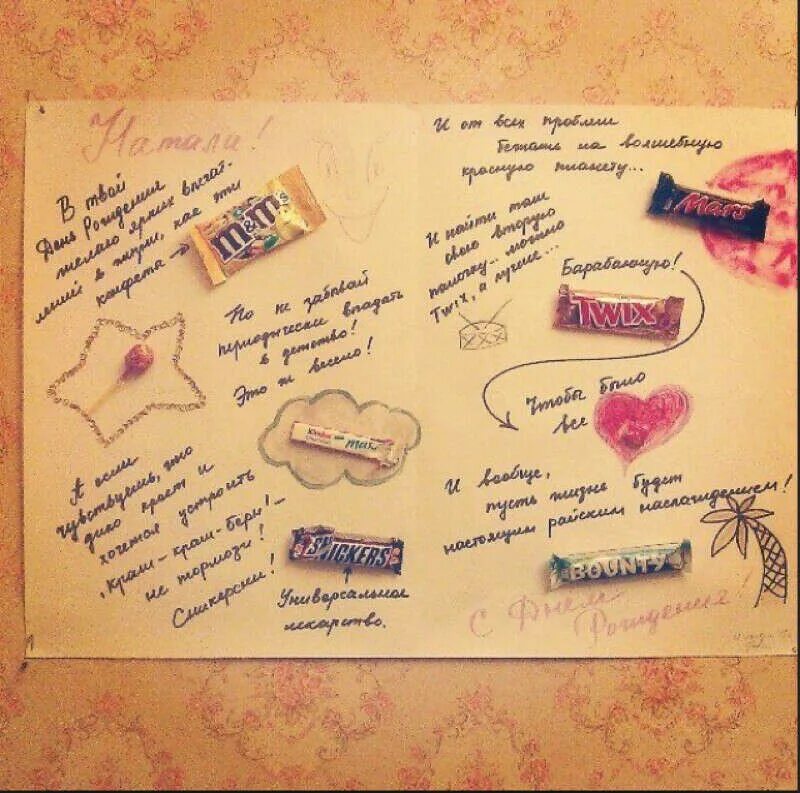 Натали!
В твой
День Рождения
желаю ярких впечат-
лений в жизни, как эти
конфета
m&m's
Но не забывай
периодически впадать
в детство!
Это ж весело!
Kinder
maxi
А если
чувствуешь, что
дико прет и
хочется устроить
"краш-краш-бери!-
не тормози!
Сникерсни!
SNICKERS
Универсальное
лекарство.
И от всех проблем
бежать на волшебную
красную планету...
Mars
И найти там
свою вторую
палочку... можно
Twix, а лучше...
Барабанную!
TWIX
Чтобы было
все
И вообще,
пусть жизнь будет
настоящим райским наслаждением!
BOUNTY
С Днем
Рождения!